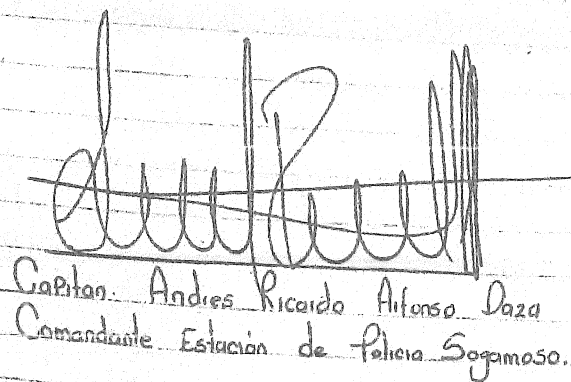 Capitan. Andres Ricardo Alfonso Daza
Comandante Estación de Policia Sogamoso.